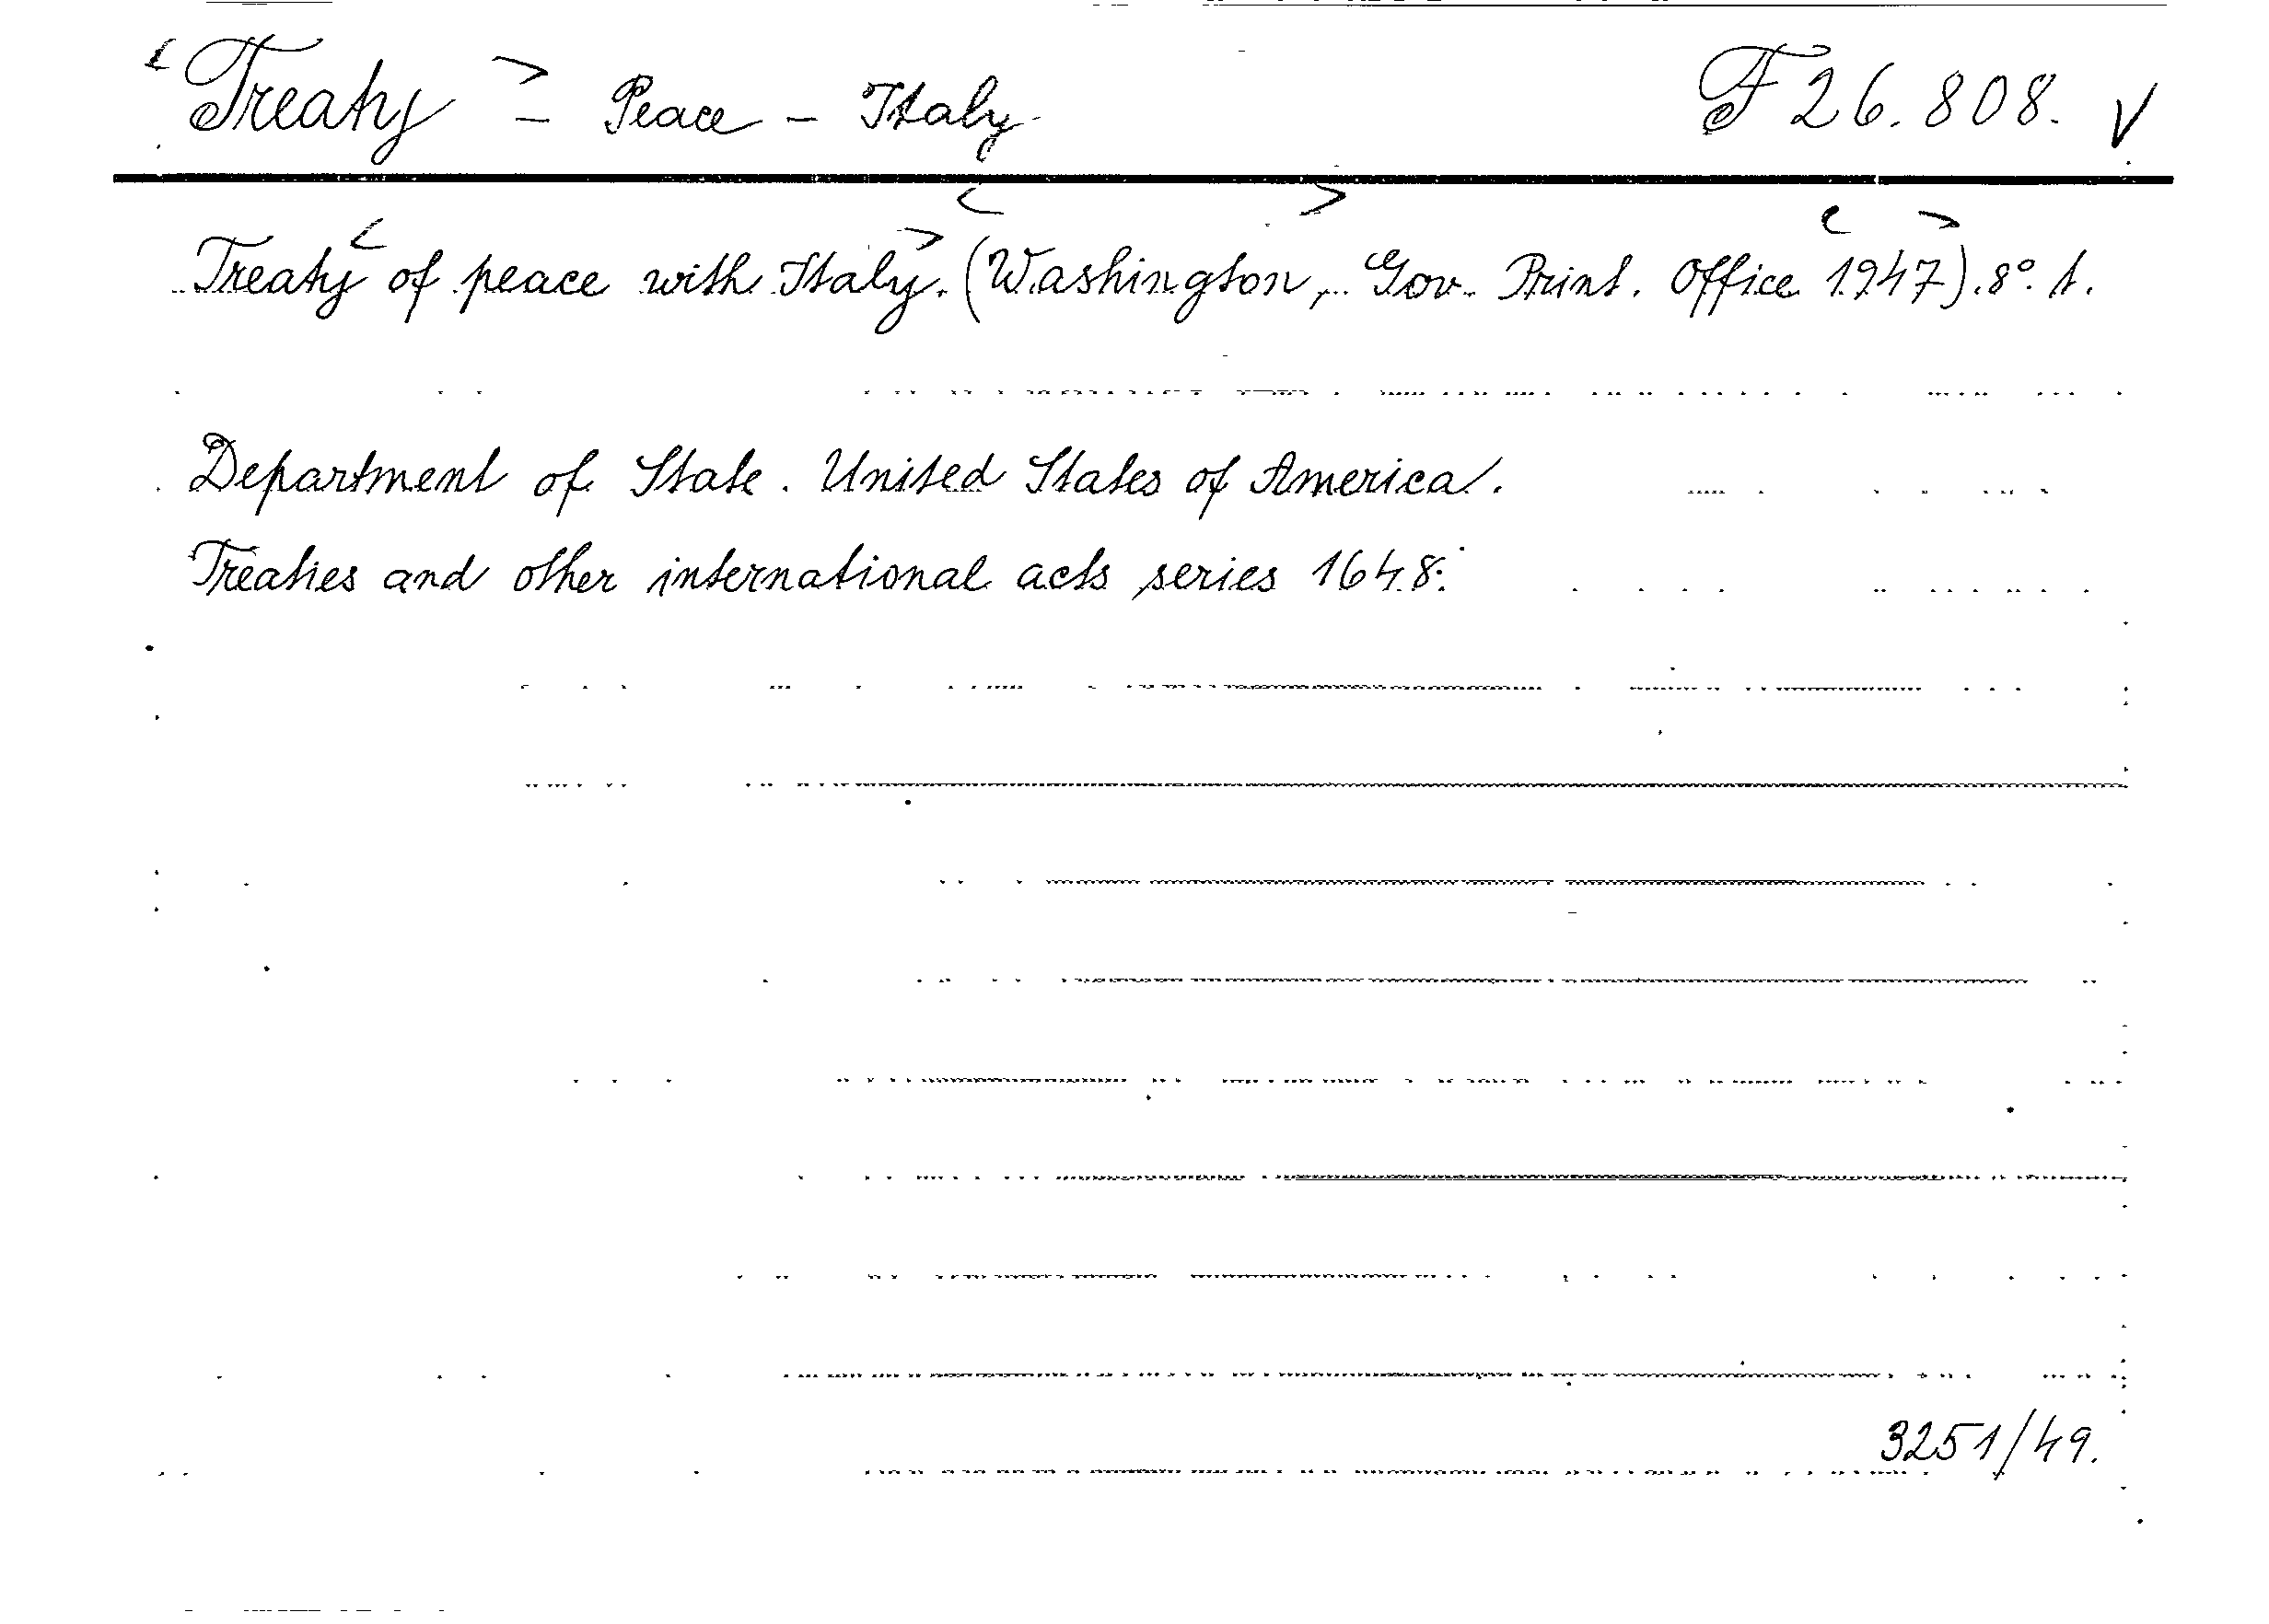 <Treaty> - Peace - Italy F 26.808. V
Treaty <of peace with Italy>. (<Washington>, Gov. Print. Office <1947>). 8°. 1.
Department of State. United States of America.
Treaties and other international acts series 1648.
3251/49.